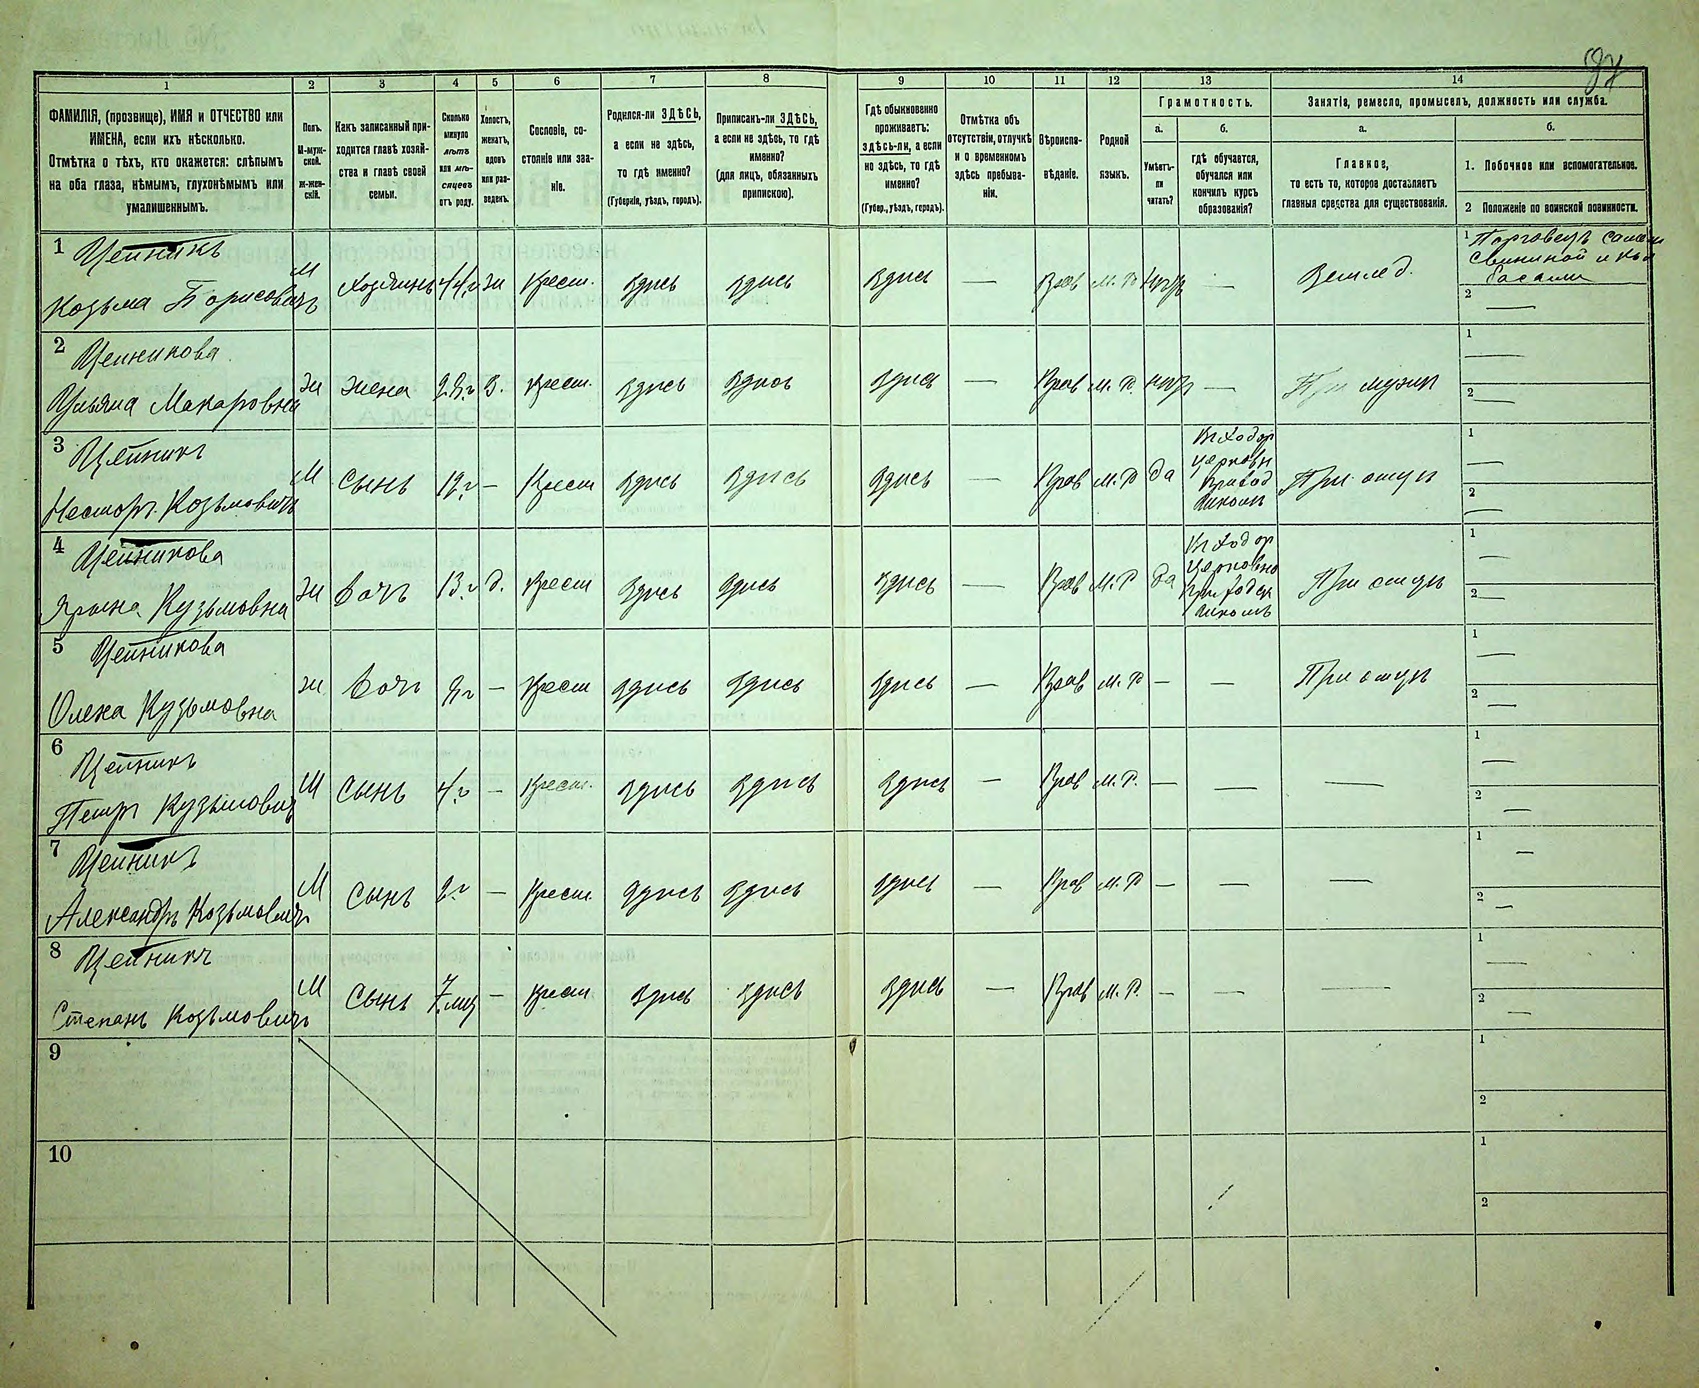 87
1 2 3 4 5 6 7 8 9 10 11 12 13 14
ФАМИЛІЯ, (прозвище), ИМЯ и ОТЧЕСТВО или
ИМЕНА, если ихъ нѣсколько.
Отмѣтка о тѣхъ, кто окажется: слѣпымъ
на оба глаза, нѣмымъ, глухонѣмымъ или
умалишеннымъ.
Полъ.
М-муж-
ской.
ж-жен-
скій.
Какъ записанный при-
ходится главѣ хозяй-
ства и главѣ своей
семьи.
Сколько
минуло
лѣтъ
или мѣ-
сяцевъ
отъ роду.
Холостъ,
женатъ,
вдовъ
или раз-
веденъ.
Сословіе, со-
стояніе или зва-
ніе.
Родился-ли ЗДѢСЬ,
а если не здѣсь,
то гдѣ именно?
(Губернія, уѣздъ, городъ).
Приписанъ-ли ЗДѢСЬ,
а если не здѣсь, то гдѣ
именно?
(для лицъ, обязанныхъ
припискою).
Гдѣ обыкновенно
проживаетъ:
здѣсь-ли, а если
не здѣсь, то гдѣ
именно?
(Губер., уѣздъ, городъ).
Отмѣтка объ
отсутствіи, отлучкѣ
и о временномъ
здѣсь пребыва-
ніи.
Вѣроиспо-
вѣданіе.
Родной
языкъ.
Грамотность.
а.
Умѣетъ-
ли
читать?
б.
гдѣ обучается,
обучался или
кончилъ курсъ
образованія?
Занятія, ремесло, промыселъ, должность или служба.
а.
Главное,
то есть то, которое доставляетъ
главныя средства для существованія.
б.
1. Побочное или вспомогательное.
2 Положеніе по воинской повинности.
1 Цейникъ
Козьма Борисовичъ
м Хозяинъ 44.г ж Крест. здись здись здись — Прав М. Р нгр — Землед.
1 Торговецъ
свининой и
2 —
2 Цейникова
Ульяна Макаровна
ж жена г З. Крест. здись здись здись — Прав М. Р. нгр — При мужи
1 —
2 —
3 Цейникъ
Несторъ Козьмовичъ
М сынъ г — Крест здись здись здись — Прав М. Р да
церковн
школи
При отци
1 —
2 —
4 Цейникова
Ярына Кузьмовна
ж дочь 13.г д. Крест здись здись здись — Прав М. Р да
церковно
школи
При отци
1 —
2 —
5 Цейникова
Олена Кузьмовна
ж дочь г — Крест здись здись здись — Прав М. Р — — При отци
1 —
2 —
6 Цейникъ
Петръ Кузьмович
М сынъ 4.г — Крест. здись здись здись — Прав М. Р. — — —
1 —
2 —
7 Цейникъ
Александръ Козьмовичъ
М сынъ 2.г — Крест здись здись здись — Прав М. Р — — —
1 —
2 —
8 Цейникъ
Степанъ Козьмовичъ
М сынъ 7. мц — Крест здись здись здись — Прав М. Р. — — —
1 —
2 —
9
1
2
10
1
2